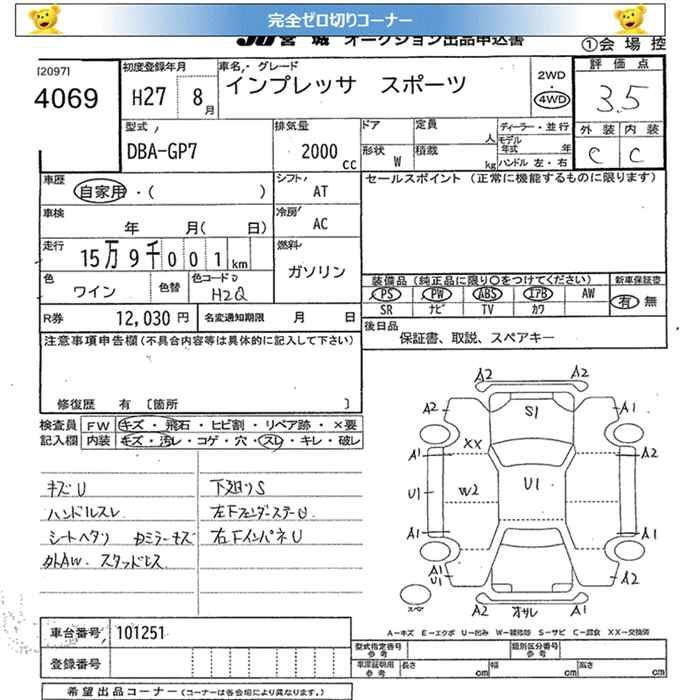 完全ゼロ切りコーナー
JU宮城 オークション出品申込書
①会場控
[2097]
4069
初度登録年月
H27 8月
車名・グレード
インプレッサ スポーツ
2WD・4WD
評価点
3.5
外装 内装
C C
型式
DBA-GP7
排気量
2000cc
ドア
定員 人
形状 W
積載 kg
ディーラー・並行
モデル年式 年
ハンドル 左・右
車歴
自家用・( )
シフト
AT
セールスポイント (正常に機能するものに限ります)
車検
年 月( 日)
冷房
AC
走行
15万9千001km
燃料
ガソリン
色
ワイン
色替
色コード
H2Q
装備品 (純正品に限り○をつけてください)
新車保証書
PS PW ABS エアB AW
SR ナビ TV カワ
有 無
R券
12,030円
名変通知期限 月 日
後日品
保証書、取説、スペアキー
注意事項申告欄(不具合内容等は具体的に記入して下さい)
修復歴 有 〔箇所 〕
検査員記入欄
FW キズ・飛石・ヒビ割・リペア跡・×要
内装 キズ・汚レ・コゲ・穴・スレ・キレ・破レ
キズU
ハンドルスレ
シートヘタリ
カミラーキズ
外AW. スタッドレス
下廻りS
左Fフェンダーステー U
右FインパネU
A2 A2
A2 S1 A1
A1 XX A2
U1 W2 U1
A1 A1
A1
U1
A2
スペア
A2 オサレ A2
A-キズ E-エクボ U-凹み W-補修跡 S-サビ C-腐食 XX-交換済
車台番号 101251
登録番号
型式指定番号 参考
類別区分番号 参考
車庫証明用 参考
長さ cm 幅 cm 高さ cm
希望出品コーナー (コーナーは各会場により異なります。)